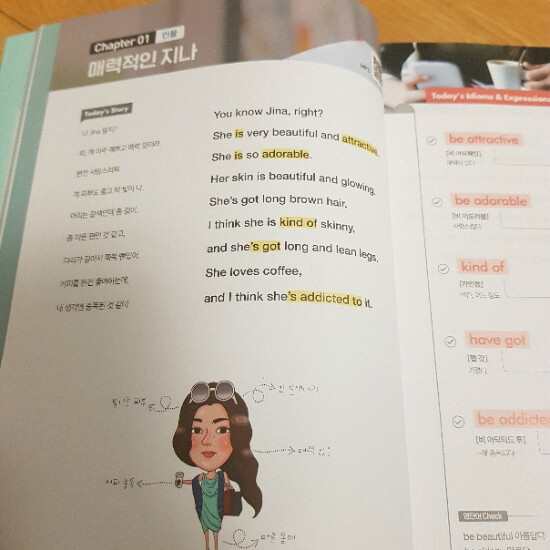 Chapter 01 인물
매력적인 지나
Today's Story
너 Jina 알지?
와, 걔 아주 예쁘고 매력 있더라.
완전 사랑스러워.
걔 피부도 좋고 막 빛이 나.
머리는 갈색인데 좀 길어.
좀 마른 편인 것 같고,
다리가 길어서 쭉쭉 뻗었어.
커피를 완전 좋아하는데,
내 생각엔 중독된 것 같아.
You know Jina, right?
She is very beautiful and attractive.
She is so adorable.
Her skin is beautiful and glowing.
She's got long brown hair.
I think she is kind of skinny,
and she's got long and lean legs.
She loves coffee,
and I think she's addicted to it.
커피 중독
마른 몸매
Today's Idioms & Expressions
be attractive
[비 어트랙티브]
매력이 있다
be adorable
[비 어도러블]
사랑스럽다
kind of
[카인덥]
약간, 어느 정도
have got
[햅 갓]
가졌다
be addicted
[비 어딕티드 투]
~에 중독되다
영단어 Check
be beautiful 아름답다